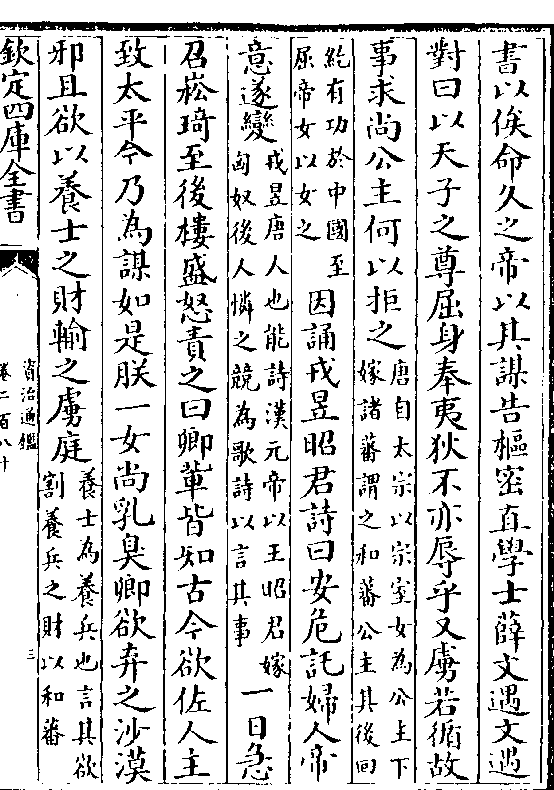 書以俟命久之帝以其謀告樞密直學士薛文遇文遇
對曰以天子之尊屈身奉夷狄不亦辱乎又虜若循故
事求尚公主何以拒之
唐自太宗以宗室女為公主下
嫁諸蕃謂之和蕃公主其後囘
紇有功於中國至
屈帝女以女之
因誦戎昱昭君詩曰安危託婦人帝
意遂變
戎昱唐人也能詩漢元帝以王昭君嫁
匈奴後人憐之競為歌詩以言其事
一日急
召崧琦至後樓盛怒責之曰卿輩皆知古今欲佐人主
致太平今乃為謀如是朕一女尚乳臭卿欲弃之沙漠
邪且欲以養士之財輸之虜庭
養士為養兵也言其欲
割養兵之財以和蕃
欽定四庫全書
資治通鑑
卷二百八十
三